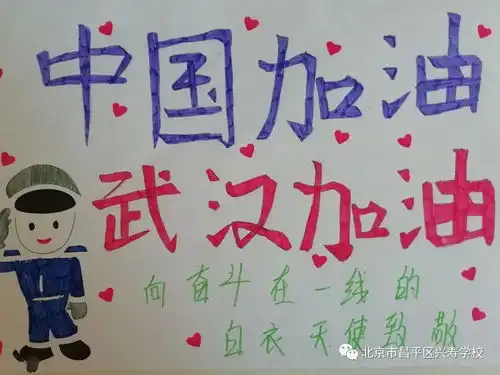 中国加油
武汉加油
向奋斗在一线的
白衣天使致敬
北京市昌平区兴寿学校